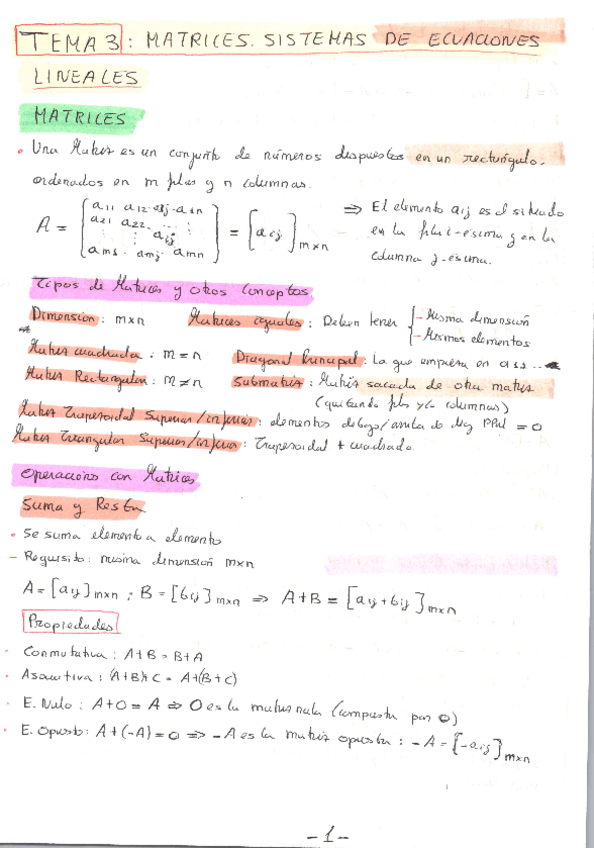 TEMA 3: MATRICES. SISTEMAS DE ECUACIONES
LINEALES
MATRICES
• Una Matriz es un conjunto de números dispuestos en un rectángulo.
ordenados en m filas y n columnas.
A = [a11 a12 ... a1j ... a1n; a21 a22 ...; aij; am1 ... amj ... amn] = [aij] mxn
⇒ El elemento aij es el situado
en la fila i-esima y en la
columna j-esima.
Tipos de Matrices y otros conceptos.
Dimension: mxn Matrices iguales: Deben tener { - Misma dimensión
- Mismos elementos
Matriz cuadrada: m = n Diagonal Principal: La que empieza en a11...
Matriz Rectangular: m ≠ n Submatriz: Matriz sacada de otra matriz
(quitando filas y/o columnas)
Matriz Trapezoidal Superior/inferior: elementos debajo/arriba de diag PPal = 0
Matriz Triangular Superior/inferior: Trapezoidal + cuadrada.
Operaciones con Matrices
Suma y Resta
• Se suma elemento a elemento
- Requisito: misma dimensión mxn
A = [aij]mxn ; B = [bij]mxn ⇒ A+B = [aij + bij]mxn
Propiedades
· Conmutativa: A+B = B+A
· Asociativa: (A+B)+C = A+(B+C)
· E. Nulo: A+O = A ⇒ O es la matriz nula (compuesta por 0)
· E. Opuesto: A+(-A) = 0 ⇒ -A es la matriz opuesta: -A = [-aij]mxn
-1-